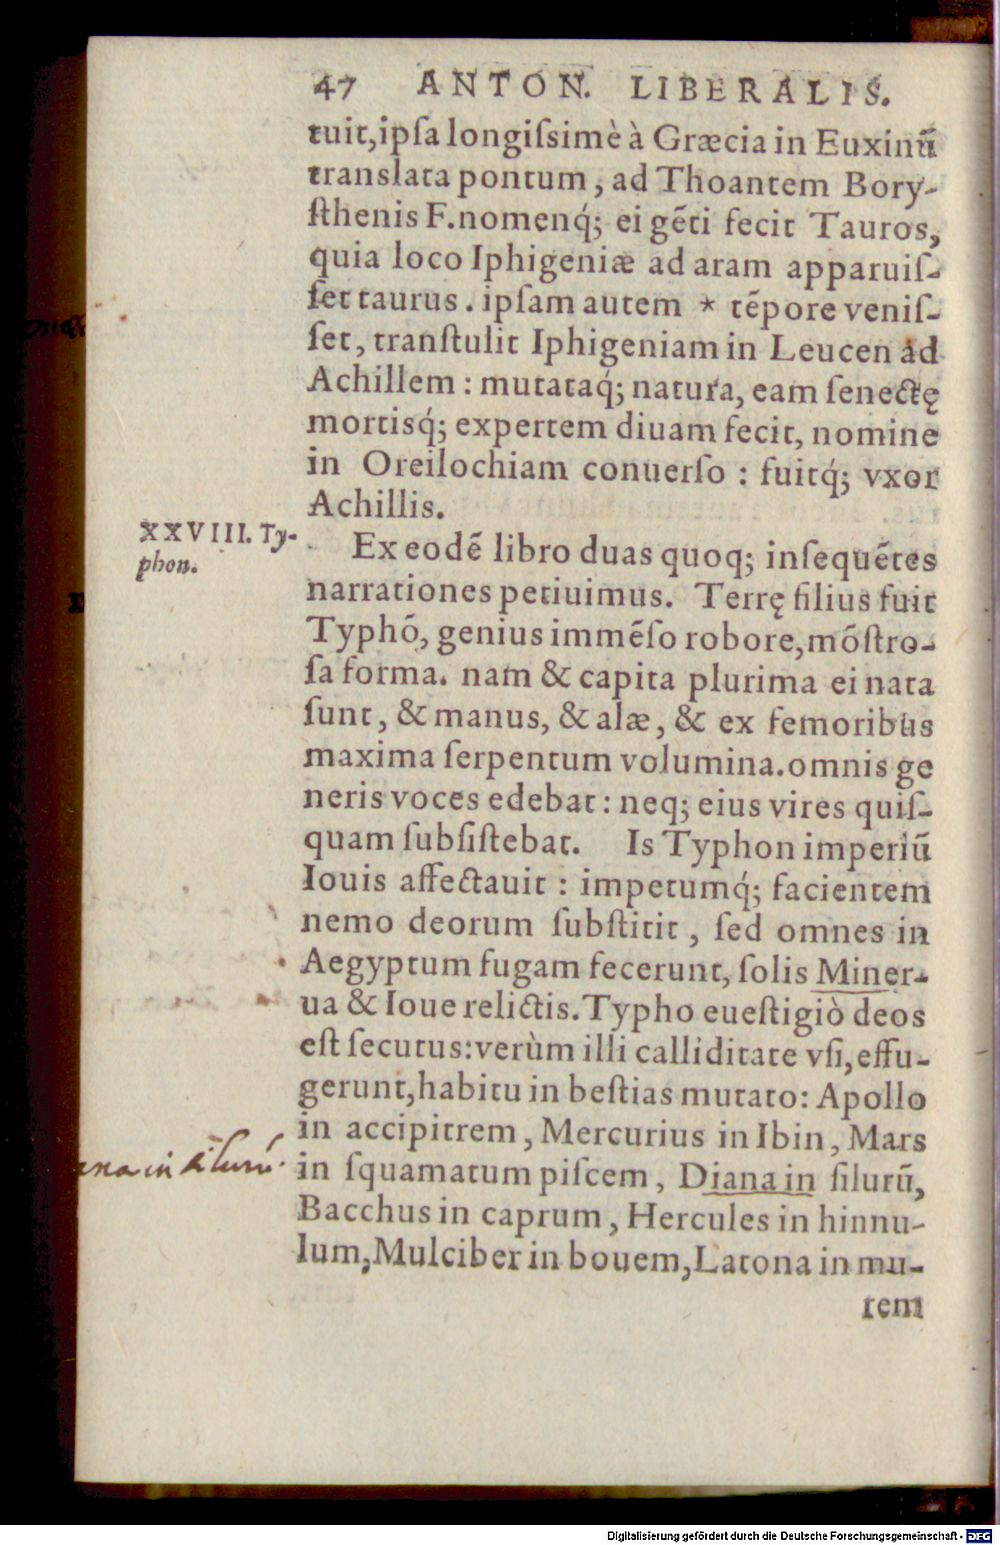 47 ANTON. LIBERALIS.
tuit,ipſa longiſsimè à Græcia in Euxinũ
translata pontum, ad Thoantem Bory-
ſthenis F.nomenq́; ei gẽti fecit Tauros,
quia loco Iphigeniæ ad aram apparuiſ-
ſet taurus. ipſam autem * tẽpore veniſ-
ſet, tranſtulit Iphigeniam in Leucen ad
Achillem: mutataq́; natura, eam ſenectę
mortisq́; expertem diuam fecit, nomine
in Oreilochiam conuerſo: fuitq́; vxor
Achillis.
XXVIII. Ty-
phon.
Ex eodẽ libro duas quoq; inſequẽtes
narrationes petiuimus. Terrę filius fuit
Typhõ, genius immẽſo robore,mõſtro-
ſa forma. nam & capita plurima ei nata
ſunt, & manus, & alæ, & ex femoribus
maxima ſerpentum volumina.omnis ge
neris voces edebat: neq; eius vires quiſ-
quam ſubſiſtebat. Is Typhon imperiũ
Iouis affectauit: impetumq́; facientem
nemo deorum ſubſtitit, ſed omnes in
Aegyptum fugam fecerunt, ſolis Miner-
ua & Ioue relictis.Typho eueſtigiò deos
eſt ſecutus:verùm illi calliditate vſi,effu-
gerunt,habitu in beſtias mutato: Apollo
in accipitrem, Mercurius in Ibin, Mars
in ſquamatum piſcem, Diana in ſilurũ,
Bacchus in caprum, Hercules in hinnu-
lum,Mulciber in bouem,Latona in mu-
tem
Digitalisierung gefördert durch die Deutsche Forschungsgemeinschaft - DFG